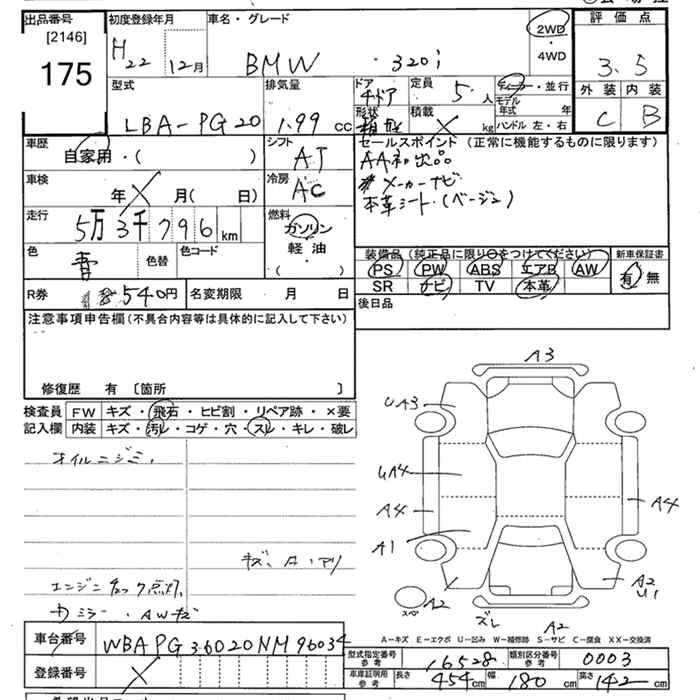 出品番号
[2146]
175
初度登録年月
H22 12月
車名・グレード
BMW 320i
2WD
・
4WD
評価点
3.5
外装 内装
C B
型式
LBA-PG20
排気量
1.99 cc
ドア
4ドア
形状
箱型
定員
5人
積載
kg
ディーラー・並行
モデル年式 年
ハンドル 左・右
車歴
自家用・( )
シフト
AT
セールスポイント (正常に機能するものに限ります)
AA初出品
メーカーナビ
本革シート(ベージュ)
車検
年 月( 日)
冷房
AC
走行
5万3千796km
燃料
ガソリン
軽油
( )
色
青
色替
色コード
装備品(純正品に限り○をつけてください)
PS PW ABS エアB AW
SR ナビ TV 本革
新車保証書
有 無
R券
540円
名変期限 月 日
後日品
注意事項申告欄(不具合内容等は具体的に記入して下さい)
修復歴 有 〔箇所 〕
検査員 FW キズ・飛石・ヒビ割・リペア跡・×要
記入欄 内装 キズ・汚レ・コゲ・穴・スレ・キレ・破レ
オイルニジミ、
エンジンチェック点灯、
カミラー・AWキズ
A3
UA3
UA4
A4
A4
A1
A2
A2
U1
スペ
ズレ
A2
A-キズ E-エクボ U-凹み W-補修跡 S-サビ C-腐食 XX-交換済
車台番号
WBAPG36020NM96034
型式指定番号
参考
16528
類別区分番号
参考
0003
登録番号
車庫証明用
参考
長さ 454cm 幅 180cm 高さ 142cm